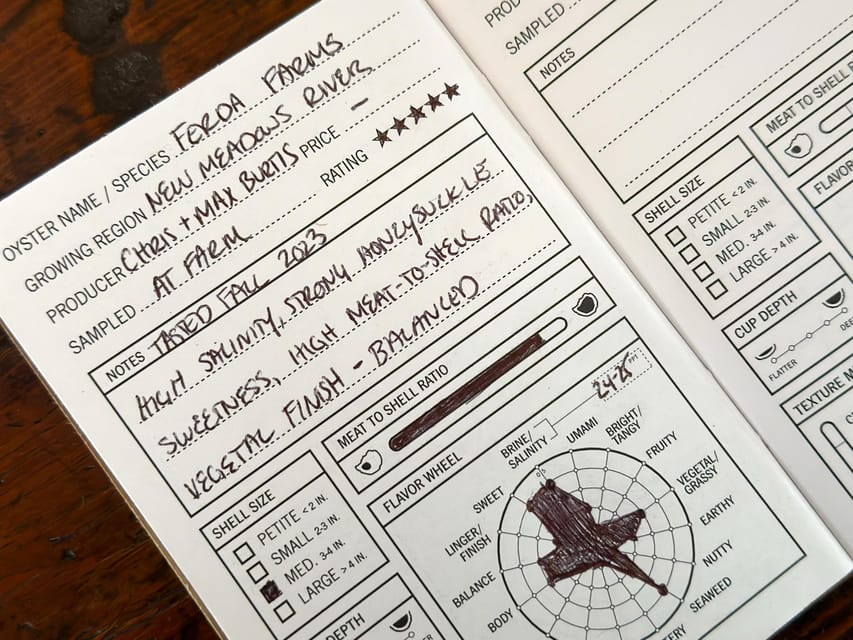 OYSTER NAME / SPECIES FERDA FARMS
GROWING REGION NEW MEADOWS RIVER
PRODUCER CHRIS + MAX BURTIS PRICE —
SAMPLED AT FARM RATING ★★★★★
NOTES TASTED FALL 2023
HIGH SALINITY, STRONG HONEYSUCKLE
SWEETNESS, HIGH MEAT-TO-SHELL RATIO,
VEGETAL FINISH - BALANCED
SHELL SIZE
PETITE < 2 IN.
SMALL 2-3 IN.
MED. 3-4 IN.
LARGE > 4 IN.
MEAT TO SHELL RATIO
FLAVOR WHEEL
24-25 PPT
BRINE/
SALINITY
UMAMI
BRIGHT/
TANGY
FRUITY
VEGETAL/
GRASSY
EARTHY
NUTTY
SEAWEED
BODY
BALANCE
LINGER/
FINISH
SWEET
DEPTH
SAMPLED
NOTES
SHELL SIZE
PETITE < 2 IN.
SMALL 2-3 IN.
MED. 3-4 IN.
LARGE > 4 IN.
MEAT TO SHELL
CUP DEPTH
FLATTER